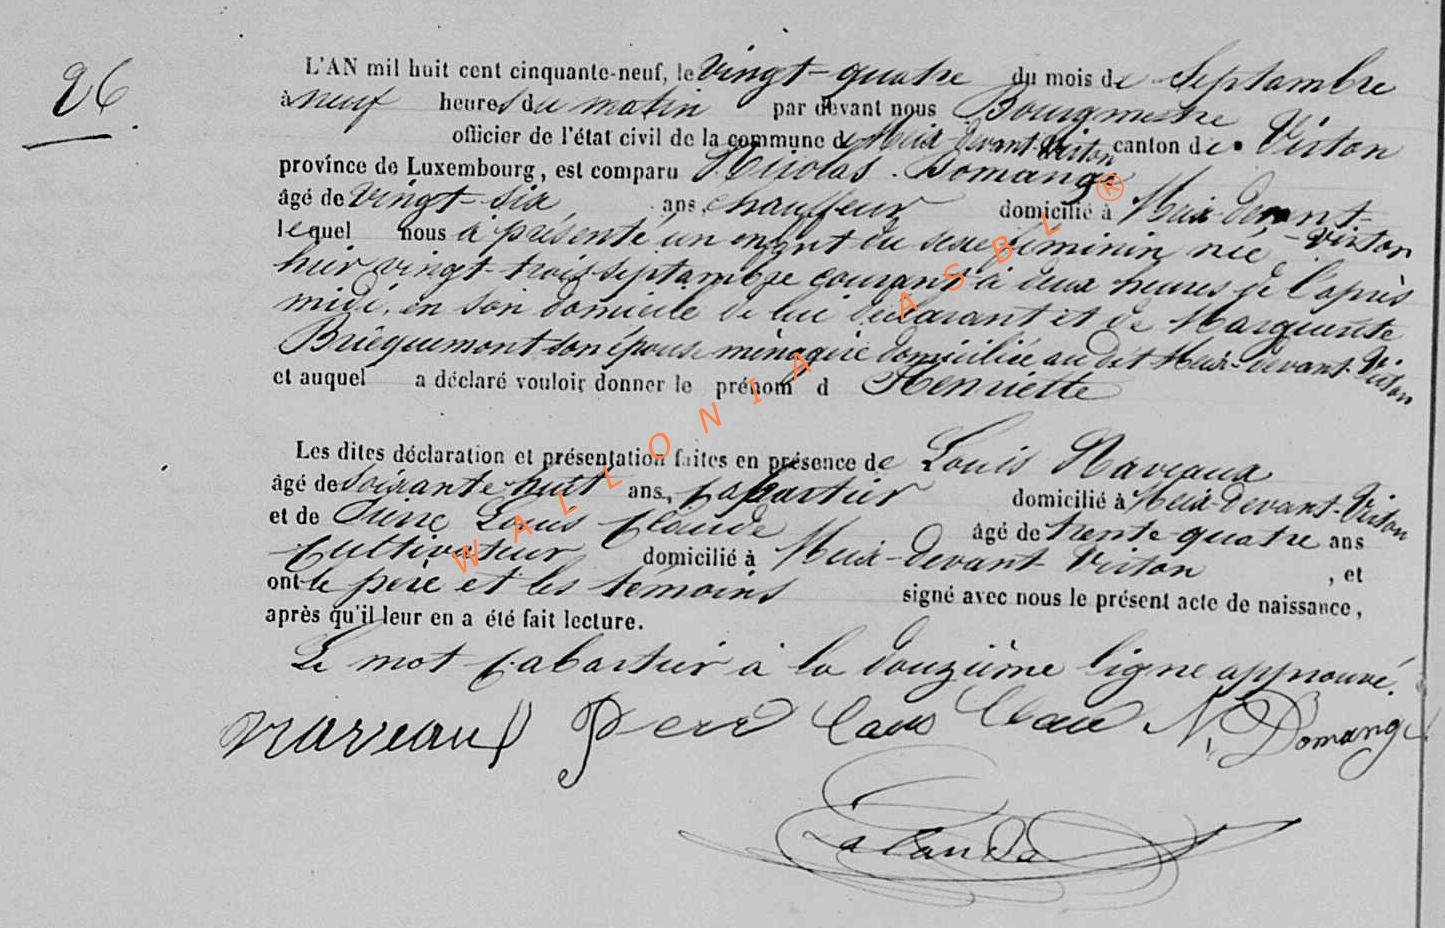 26
L'AN mil huit cent cinquante-neuf, le vingt-quatre du mois de Septambre
à neuf heures du matin par devant nous Bourgmestre
officier de l'état civil de la commune de Meix-devant-Virton canton de Virton
province de Luxembourg, est comparu Nicolas Domange
âgé de vingt-six ans, chauffeur domicilié à Meix-devant-Virton
lequel nous à présenté un enfant du sexe féminin née
hier vingt-trois septambre courant à deux heures de l'après
midi, en son domicile de lui déclarant et de Marguerite
Briéquemont son épouse ménagère domiciliée au dit Meix-devant-Virton
et auquel a déclaré vouloir donner le prénom d Henriette
Les dites déclaration et présentation faites en présence de Louis Naveaux
âgé de soixante-huit ans, cabartier domicilié à Meix-devant-Virton
et de Louis Claude âgé de trente-quatre ans
Cultivateur domicilié à Meix-devant-Virton, et
ont le père et les témoins signé avec nous le présent acte de naissance,
après qu'il leur en a été fait lecture.
Le mot cabartier à la douzième ligne approuvé.
N. Domange
WALLONIA ASBL ®